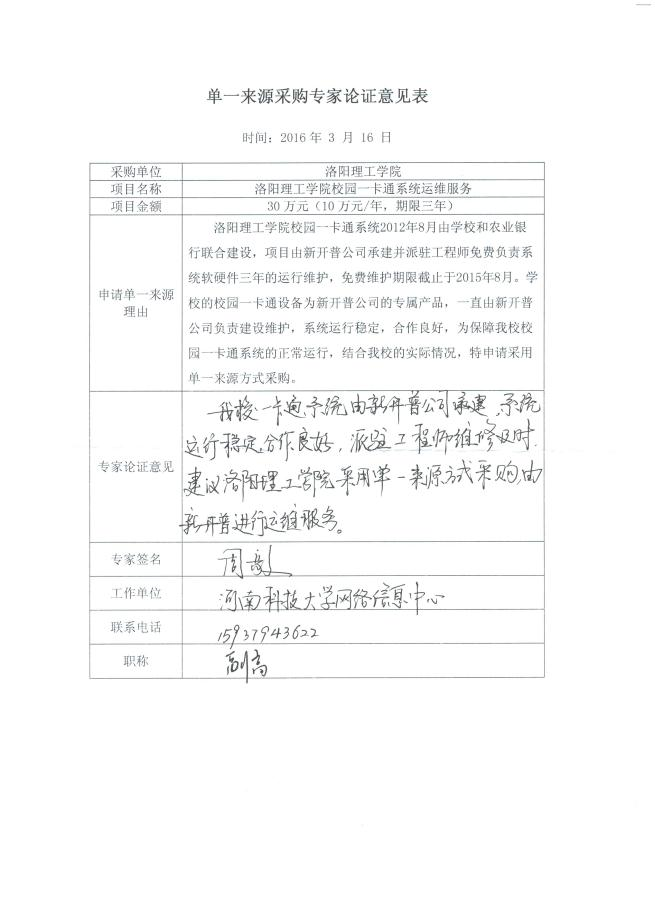 单一来源采购专家论证意见表
时间：2016 年 3 月 16 日
采购单位 洛阳理工学院
项目名称 洛阳理工学院校园一卡通系统运维服务
项目金额 30 万元（10 万元/年，期限三年）
申请单一来源
理由
洛阳理工学院校园一卡通系统2012年8月由学校和农业银
行联合建设，项目由新开普公司承建并派驻工程师免费负责系
统软硬件三年的运行维护，免费维护期限截止于2015年8月。学
校的校园一卡通设备为新开普公司的专属产品，一直由新开普
公司负责建设维护，系统运行稳定，合作良好，为保障我校校
园一卡通系统的正常运行，结合我校的实际情况，特申请采用
单一来源方式采购。
专家论证意见
我校一卡通系统由新开普公司承建，系统
运行稳定，合作良好，派驻工程师维修及时，
建议洛阳理工学院采用单一来源方式采购，由
新开普进行运维服务。
专家签名 周
工作单位 河南科技大学网络信息中心
联系电话 15937943622
职称 副高